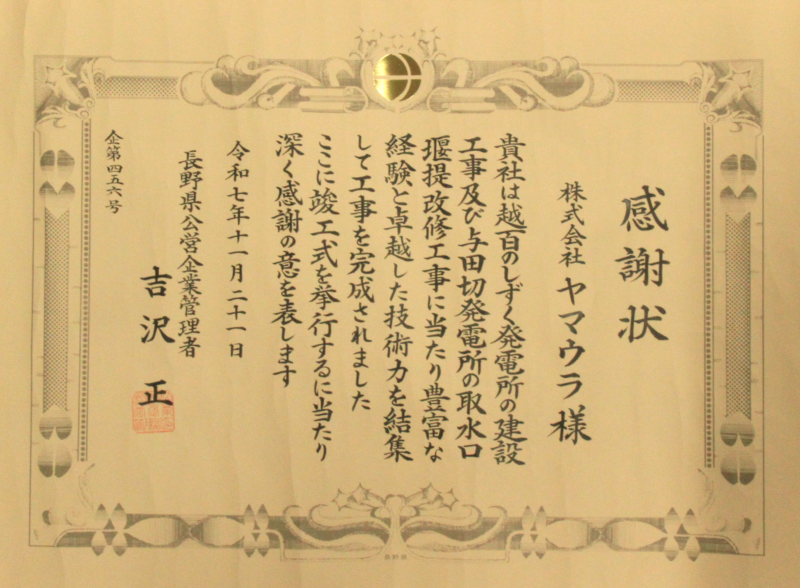 感謝状
株式会社 ヤマウラ 様
貴社は越百のしずく発電所の建設
工事及び与田切発電所の取水口
堰提改修工事に当たり豊富な
経験と卓越した技術力を結集
して工事を完成されました
ここに竣工式を挙行するに当たり
深く感謝の意を表します
令和七年十一月二十一日
長野県公営企業管理者
吉沢 正
企第四五六号
長野県